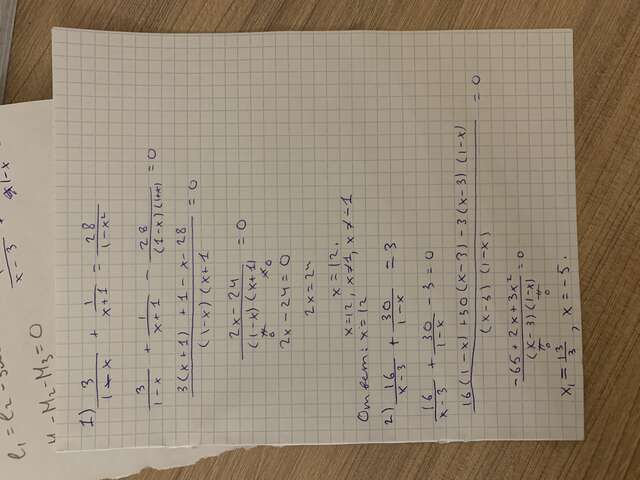 e₁ = e₂ -
x-3 1-x
-M₂-M₃=0
1) 3/(1-x) + 1/(x+1) = 28/(1-x²)
3/(1-x) + 1/(x+1) - 28/((1-x)(1+x)) = 0
(3(x+1) + 1 - x - 28)/((1-x)(x+1) = 0
(2x-24)/((1-x)(x+1)) = 0
≠0 ≠0
2x-24=0
2x=24
x=12.
x=12, x≠1, x≠-1
Ответ: x=12
2) 16/(x-3) + 30/(1-x) = 3
16/(x-3) + 30/(1-x) - 3 = 0
(16(1-x)+30(x-3)-3(x-3)(1-x))/((x-3)(1-x)) = 0
(-65+2x+3x²)/((x-3)(1-x)) = 0
≠0 ≠0
x₁=13/3, x=-5.